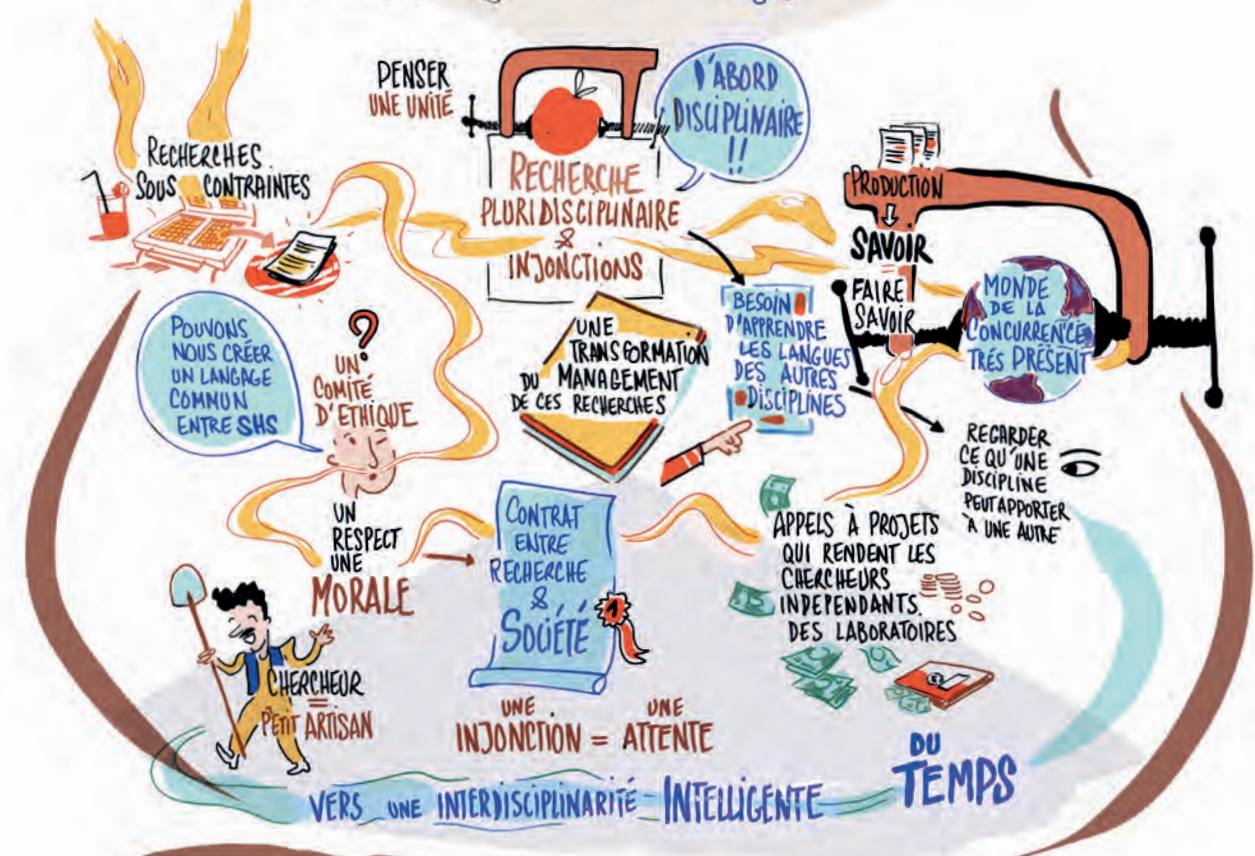 PENSER
UNE UNITÉ
D'ABORD
DISCIPLINAIRE
!!
RECHERCHES
SOUS CONTRAINTES
RECHERCHE
PLURIDISCIPLINAIRE
&
INJONCTIONS
PRODUCTION
SAVOIR
FAIRE
SAVOIR
MONDE
DE LA
CONCURRENCE
TRÉS PRÉSENT
POUVONS
NOUS CRÉER
UN LANGAGE
COMMUN
ENTRE SHS
?
UN
COMITÉ
D'ETHIQUE
UNE
TRANSFORMATION
DU MANAGEMENT
DE CES RECHERCHES
BESOIN
D'APPRENDRE
LES LANGUES
DES AUTRES
DISCIPLINES
REGARDER
CE QU'UNE
DISCIPLINE
PEUT APPORTER
A UNE AUTRE
UN
RESPECT
UNE
MORALE
CONTRAT
ENTRE
RECHERCHE
&
SOCIÉTÉ
1
APPELS À PROJETS
QUI RENDENT LES
CHERCHEURS
INDEPENDANTS.
DES LABORATOIRES
CHERCHEUR
=
PETIT ARTISAN
UNE INJONCTION = UNE ATTENTE
DU
TEMPS
VERS UNE INTERDISCIPLINARITÉ INTELLIGENTE